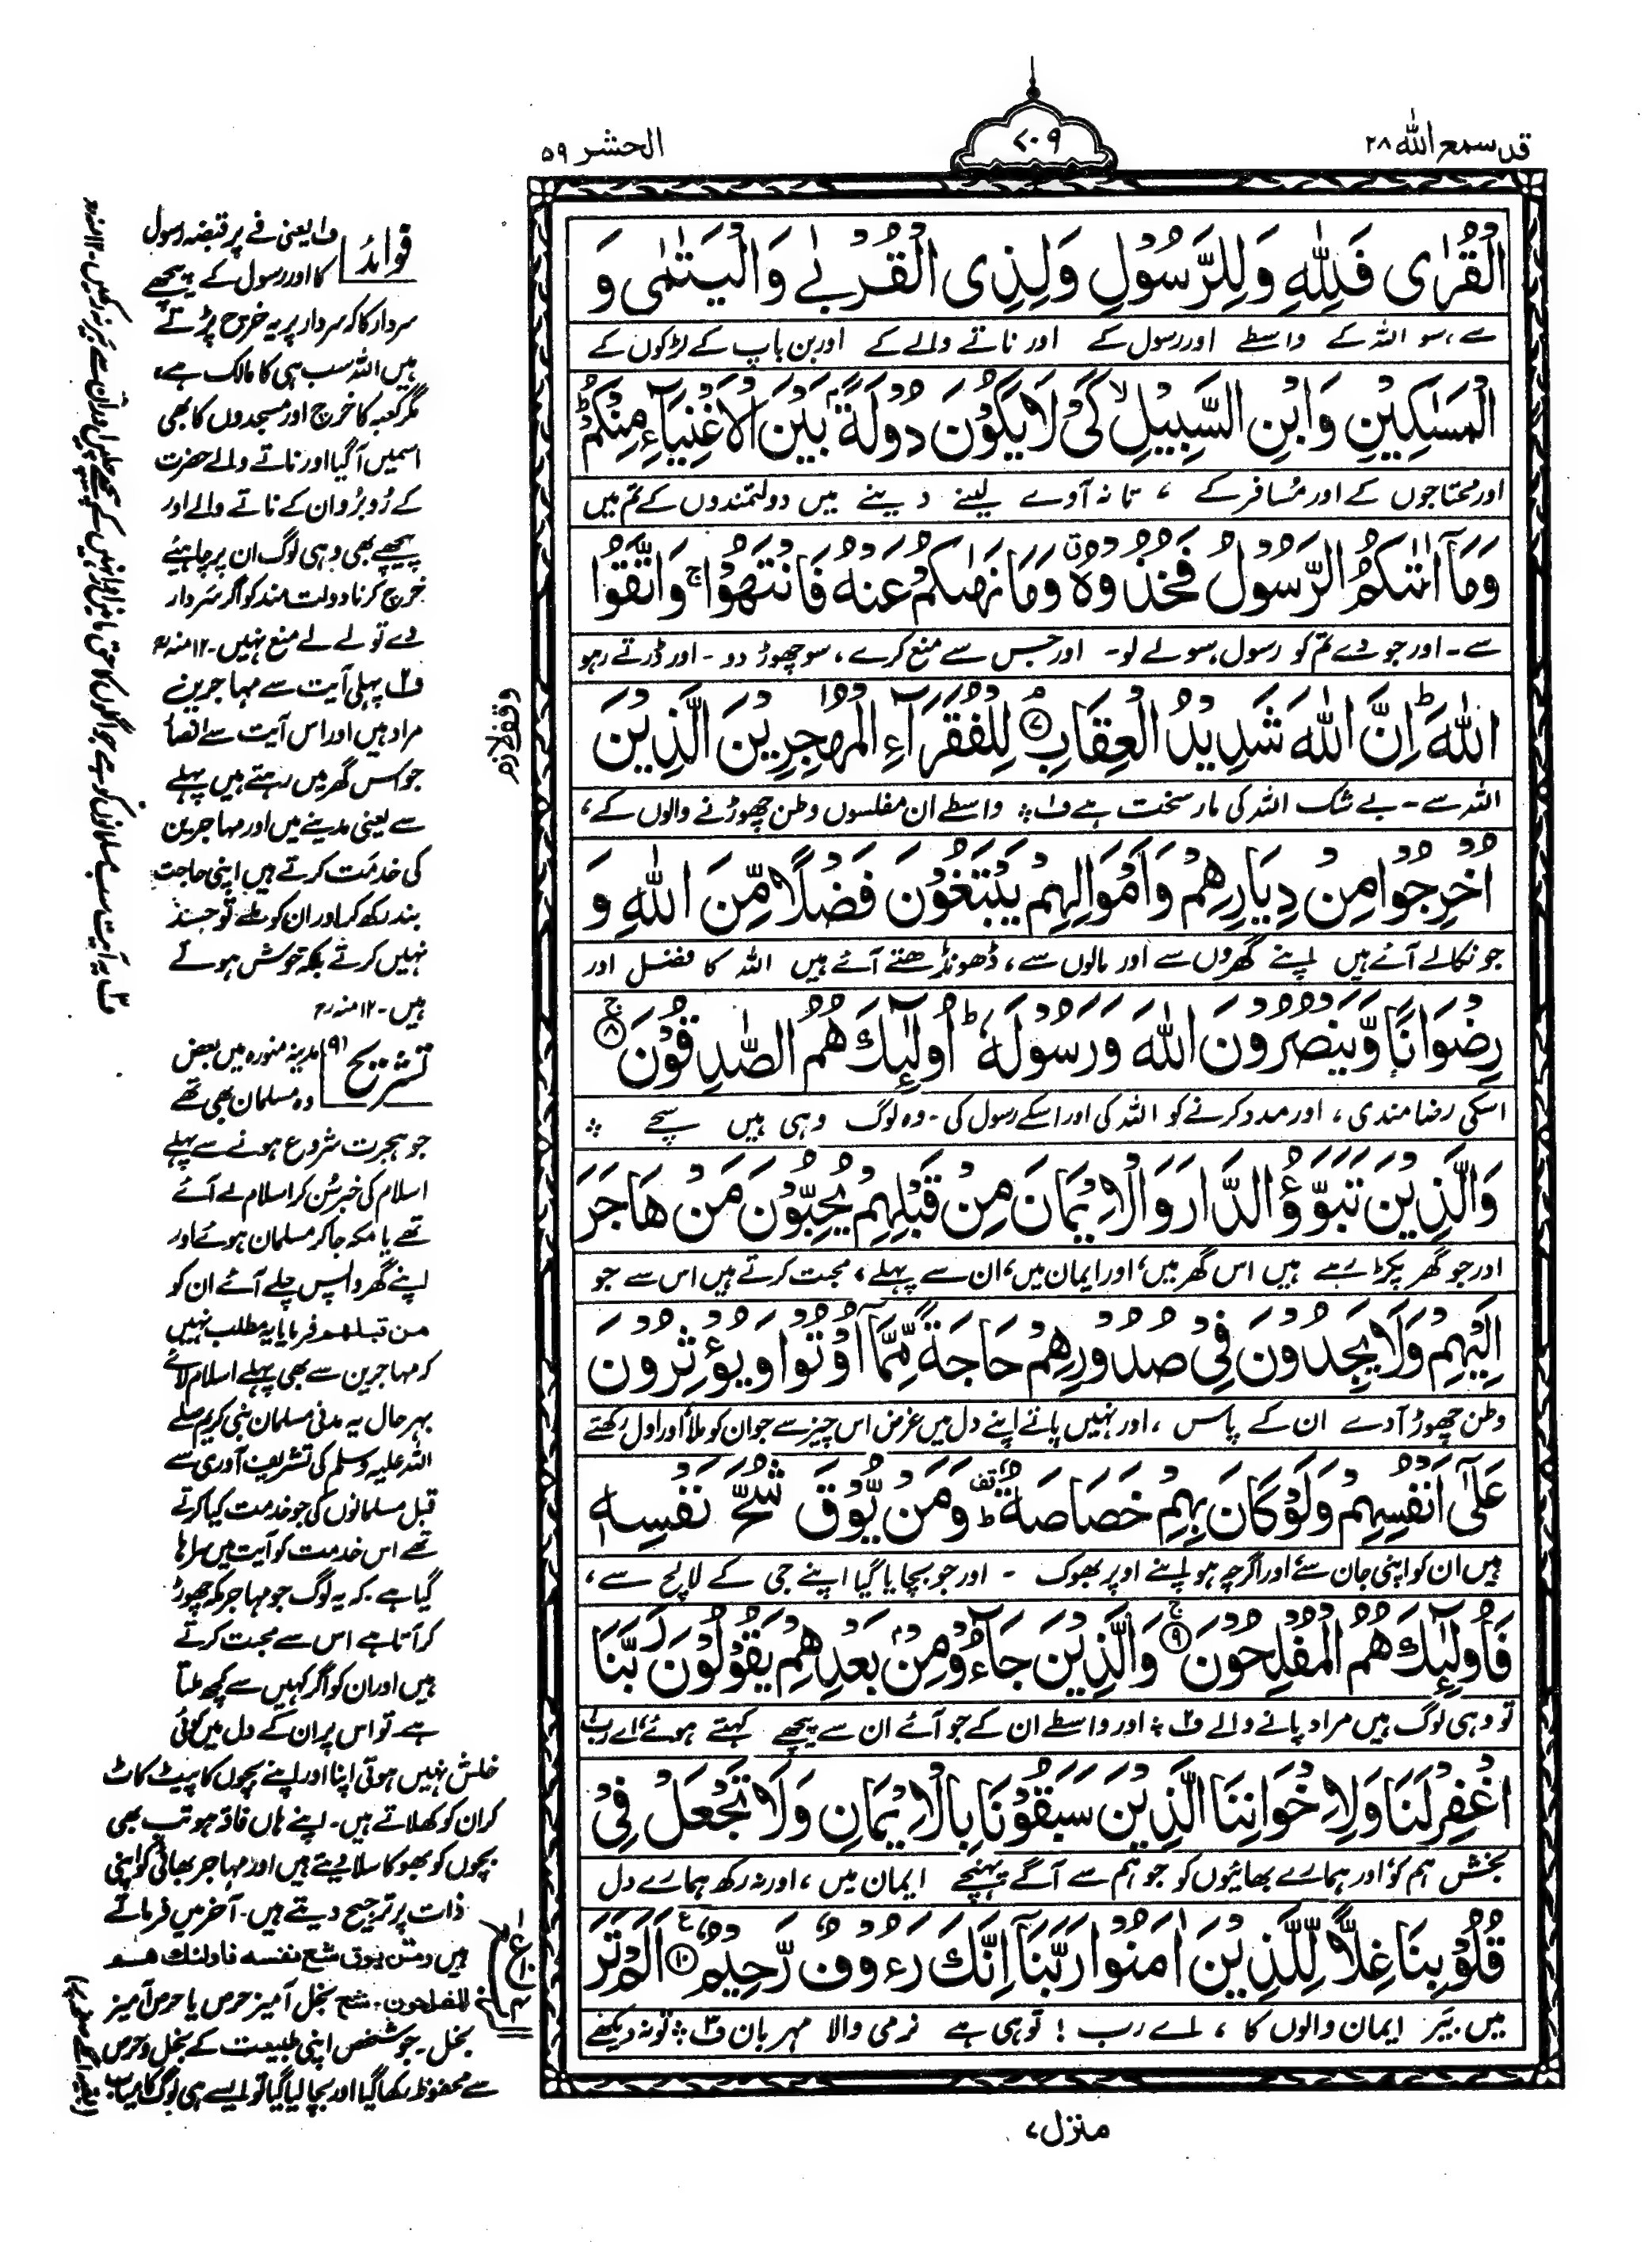 قد سمع الله ۲۸
۷۰۹
الحشر ۵۹
الْقُرٰى فَلِلّٰهِ وَلِلرَّسُوْلِ وَلِذِى الْقُرْبٰى وَالْيَتٰمٰى وَ
سے، سو اللہ کے واسطے اور رسول کے اور ناتے والے کے اور بن باپ کے لڑکوں کے
الْمَسٰكِيْنِ وَابْنِ السَّبِيْلِ ۙ كَىْ لَا يَكُوْنَ دُوْلَةًۢ بَيْنَ الْاَغْنِيَآءِ مِنْكُمْ ؕ
اور محتاجوں کے اور مسافر کے ، تا نہ آوے لینے دینے میں دولتمندوں کے تم میں
وَمَآ اٰتٰىكُمُ الرَّسُوْلُ فَخُذُوْهُ ۤ وَمَا نَهٰىكُمْ عَنْهُ فَانْتَهُوْا ۚ وَاتَّقُوا
سے۔ اور جو دے تم کو رسول، سو لے لو۔ اور جس سے منع کرے، سو چھوڑ دو۔ اور ڈرتے رہو
اللّٰهَ ؕ اِنَّ اللّٰهَ شَدِيْدُ الْعِقَابِ ۘ ﴿۷﴾ لِلْفُقَرَآءِ الْمُهٰجِرِيْنَ الَّذِيْنَ
اللہ سے۔ بے شک اللہ کی مار سخت ہے ف۱ ؞ واسطے ان مفلسوں وطن چھوڑنے والوں کے،
اُخْرِجُوْا مِنْ دِيَارِهِمْ وَاَمْوَالِهِمْ يَبْتَغُوْنَ فَضْلًا مِّنَ اللّٰهِ وَ
جو نکالے آئے ہیں اپنے گھروں سے اور مالوں سے، ڈھونڈھتے آئے ہیں اللہ کا فضل اور
رِضْوَانًا وَّيَنْصُرُوْنَ اللّٰهَ وَرَسُوْلَهٗ ؕ اُولٰٓئِكَ هُمُ الصّٰدِقُوْنَ ۚ ﴿۸﴾
اسکی رضا مندی، اور مدد کرنے کو اللہ کی اور اسکے رسول کی۔ وہ لوگ وہی ہیں سچے ؞
وَالَّذِيْنَ تَبَوَّؤُ الدَّارَ وَالْاِيْمَانَ مِنْ قَبْلِهِمْ يُحِبُّوْنَ مَنْ هَاجَرَ
اور جو گھر پکڑ رہے ہیں اس گھر میں، اور ایمان میں، ان سے پہلے، محبت کرتے ہیں اس سے جو
اِلَيْهِمْ وَلَا يَجِدُوْنَ فِىْ صُدُوْرِهِمْ حَاجَةً مِّمَّآ اُوْتُوْا وَيُؤْثِرُوْنَ
وطن چھوڑ آدے ان کے پاس، اور نہیں پاتے اپنے دل میں غرض اس چیز سے جو ان کو ملا، اور اول رکھتے
عَلٰٓى اَنْفُسِهِمْ وَلَوْ كَانَ بِهِمْ خَصَاصَةٌ ؕ وَمَنْ يُّوْقَ شُحَّ نَفْسِهٖ
ہیں ان کو اپنی جان سے، اور اگرچہ ہو اپنے اوپر بھوک - اور جو بچایا گیا اپنے جی کے لالچ سے،
فَاُولٰٓئِكَ هُمُ الْمُفْلِحُوْنَ ۚ ﴿۹﴾ وَالَّذِيْنَ جَآءُوْ مِنْۢ بَعْدِهِمْ يَقُوْلُوْنَ رَبَّنَا
تو وہی لوگ ہیں مراد پانے والے ف۲ ؞ اور واسطے ان کے جو آئے ان سے پیچھے کہتے ہوئے، اے رب!
اغْفِرْ لَنَا وَلِاِخْوَانِنَا الَّذِيْنَ سَبَقُوْنَا بِالْاِيْمَانِ وَلَا تَجْعَلْ فِىْ
بخش ہم کو، اور ہمارے بھائیوں کو جو ہم سے آگے پہنچے ایمان میں، اور نہ رکھ ہمارے دل
قُلُوْبِنَا غِلًّا لِّلَّذِيْنَ اٰمَنُوْا رَبَّنَآ اِنَّكَ رَءُوْفٌ رَّحِيْمٌ ۧ ﴿۱۰﴾ اَلَمْ تَرَ
میں بَیر ایمان والوں کا، اے رب! تو ہی ہے نرمی والا مہربان ف۳ ؞ تو نہ دیکھے
منزل ۷
وقف لازم
فوائد
ف۱ یعنی فے پر قبضہ رسول
کا اور رسول کے پیچھے
سردار کا کہ سردار پر یہ خرچ پڑتے
ہیں اللہ سب ہی کا مالک ہے،
مگر کعبہ کا خرچ اور مسجدوں کا بھی
اسمیں آگیا اور ناتے والے حضرت
کے رُوبرُو ان کے ناتے والے اور
پیچھے بھی وہی لوگ ان پر چاہیئے
خرچ کرنا دولت مند کو اگر سردار
دے تو لے لے منع نہیں۔ ۱۲ منہ رح
ف۲ پہلی آیت سے مہاجرین
مراد ہیں اور اس آیت سے انصار
جو اس گھر میں رہتے ہیں پہلے
سے یعنی مدینے میں اور مہاجرین
کی خدمت کرتے ہیں اپنی حاجت
بند رکھ کر اور ان کو ملے تو حسد
نہیں کرتے بلکہ خوش ہوتے
ہیں۔ ۱۲ منہ رح
تشریح
(۹) مدینہ منورہ میں بعض
وہ مسلمان بھی تھے
جو ہجرت شروع ہونے سے پہلے
اسلام کی خبر سُن کر اسلام لے آئے
تھے یا مکہ جا کر مسلمان ہوئے اور
اپنے گھر واپس چلے آئے ان کو
من قبلھم فرمایا یہ مطلب نہیں
کہ مہاجرین سے بھی پہلے اسلام لائے
بہر حال یہ مدنی مسلمان نبی کریم صلے
اللہ علیہ وسلم کی تشریف آوری سے
قبل مسلمانوں کی جو خدمت کیا کرتے
تھے اس خدمت کو آیت میں سراہا
گیا ہے۔ کہ یہ لوگ جو مہاجر مکہ چھوڑ
کر آتا ہے اس سے محبت کرتے
ہیں اور ان کو اگر کہیں سے کچھ ملتا
ہے تو اس پر ان کے دل میں کوئی
خلش نہیں ہوتی اپنا اور اپنے بچوں کا پیٹ کاٹ
کر ان کو کھلاتے ہیں۔ اپنے ہاں فاقہ ہو تب بھی
بچوں کو بھوکا سلا دیتے ہیں اور مہاجر بھائی کو اپنی
ذات پر ترجیح دیتے ہیں۔ آخر میں فرماتے
ہیں ومن یوق شح نفسه فاولئك هم
المفلحون۔ شح بخل آمیز حرص یا حرص آمیز
بخل۔ جو شخص اپنی طبیعت کے بخل و حرص
سے محفوظ رکھا گیا اور بچا لیا گیا تو ایسے ہی لوگ کامیاب
(بقیہ اگلے صفحہ پر)
ف۳ یہ آیت سب مسلمانوں کو ہے جو اگلوں کا حق مانیں اور انہیں کے پیچھے چلیں اور ان سے بَیر نہ رکھیں۔ ۱۲ منہ رح